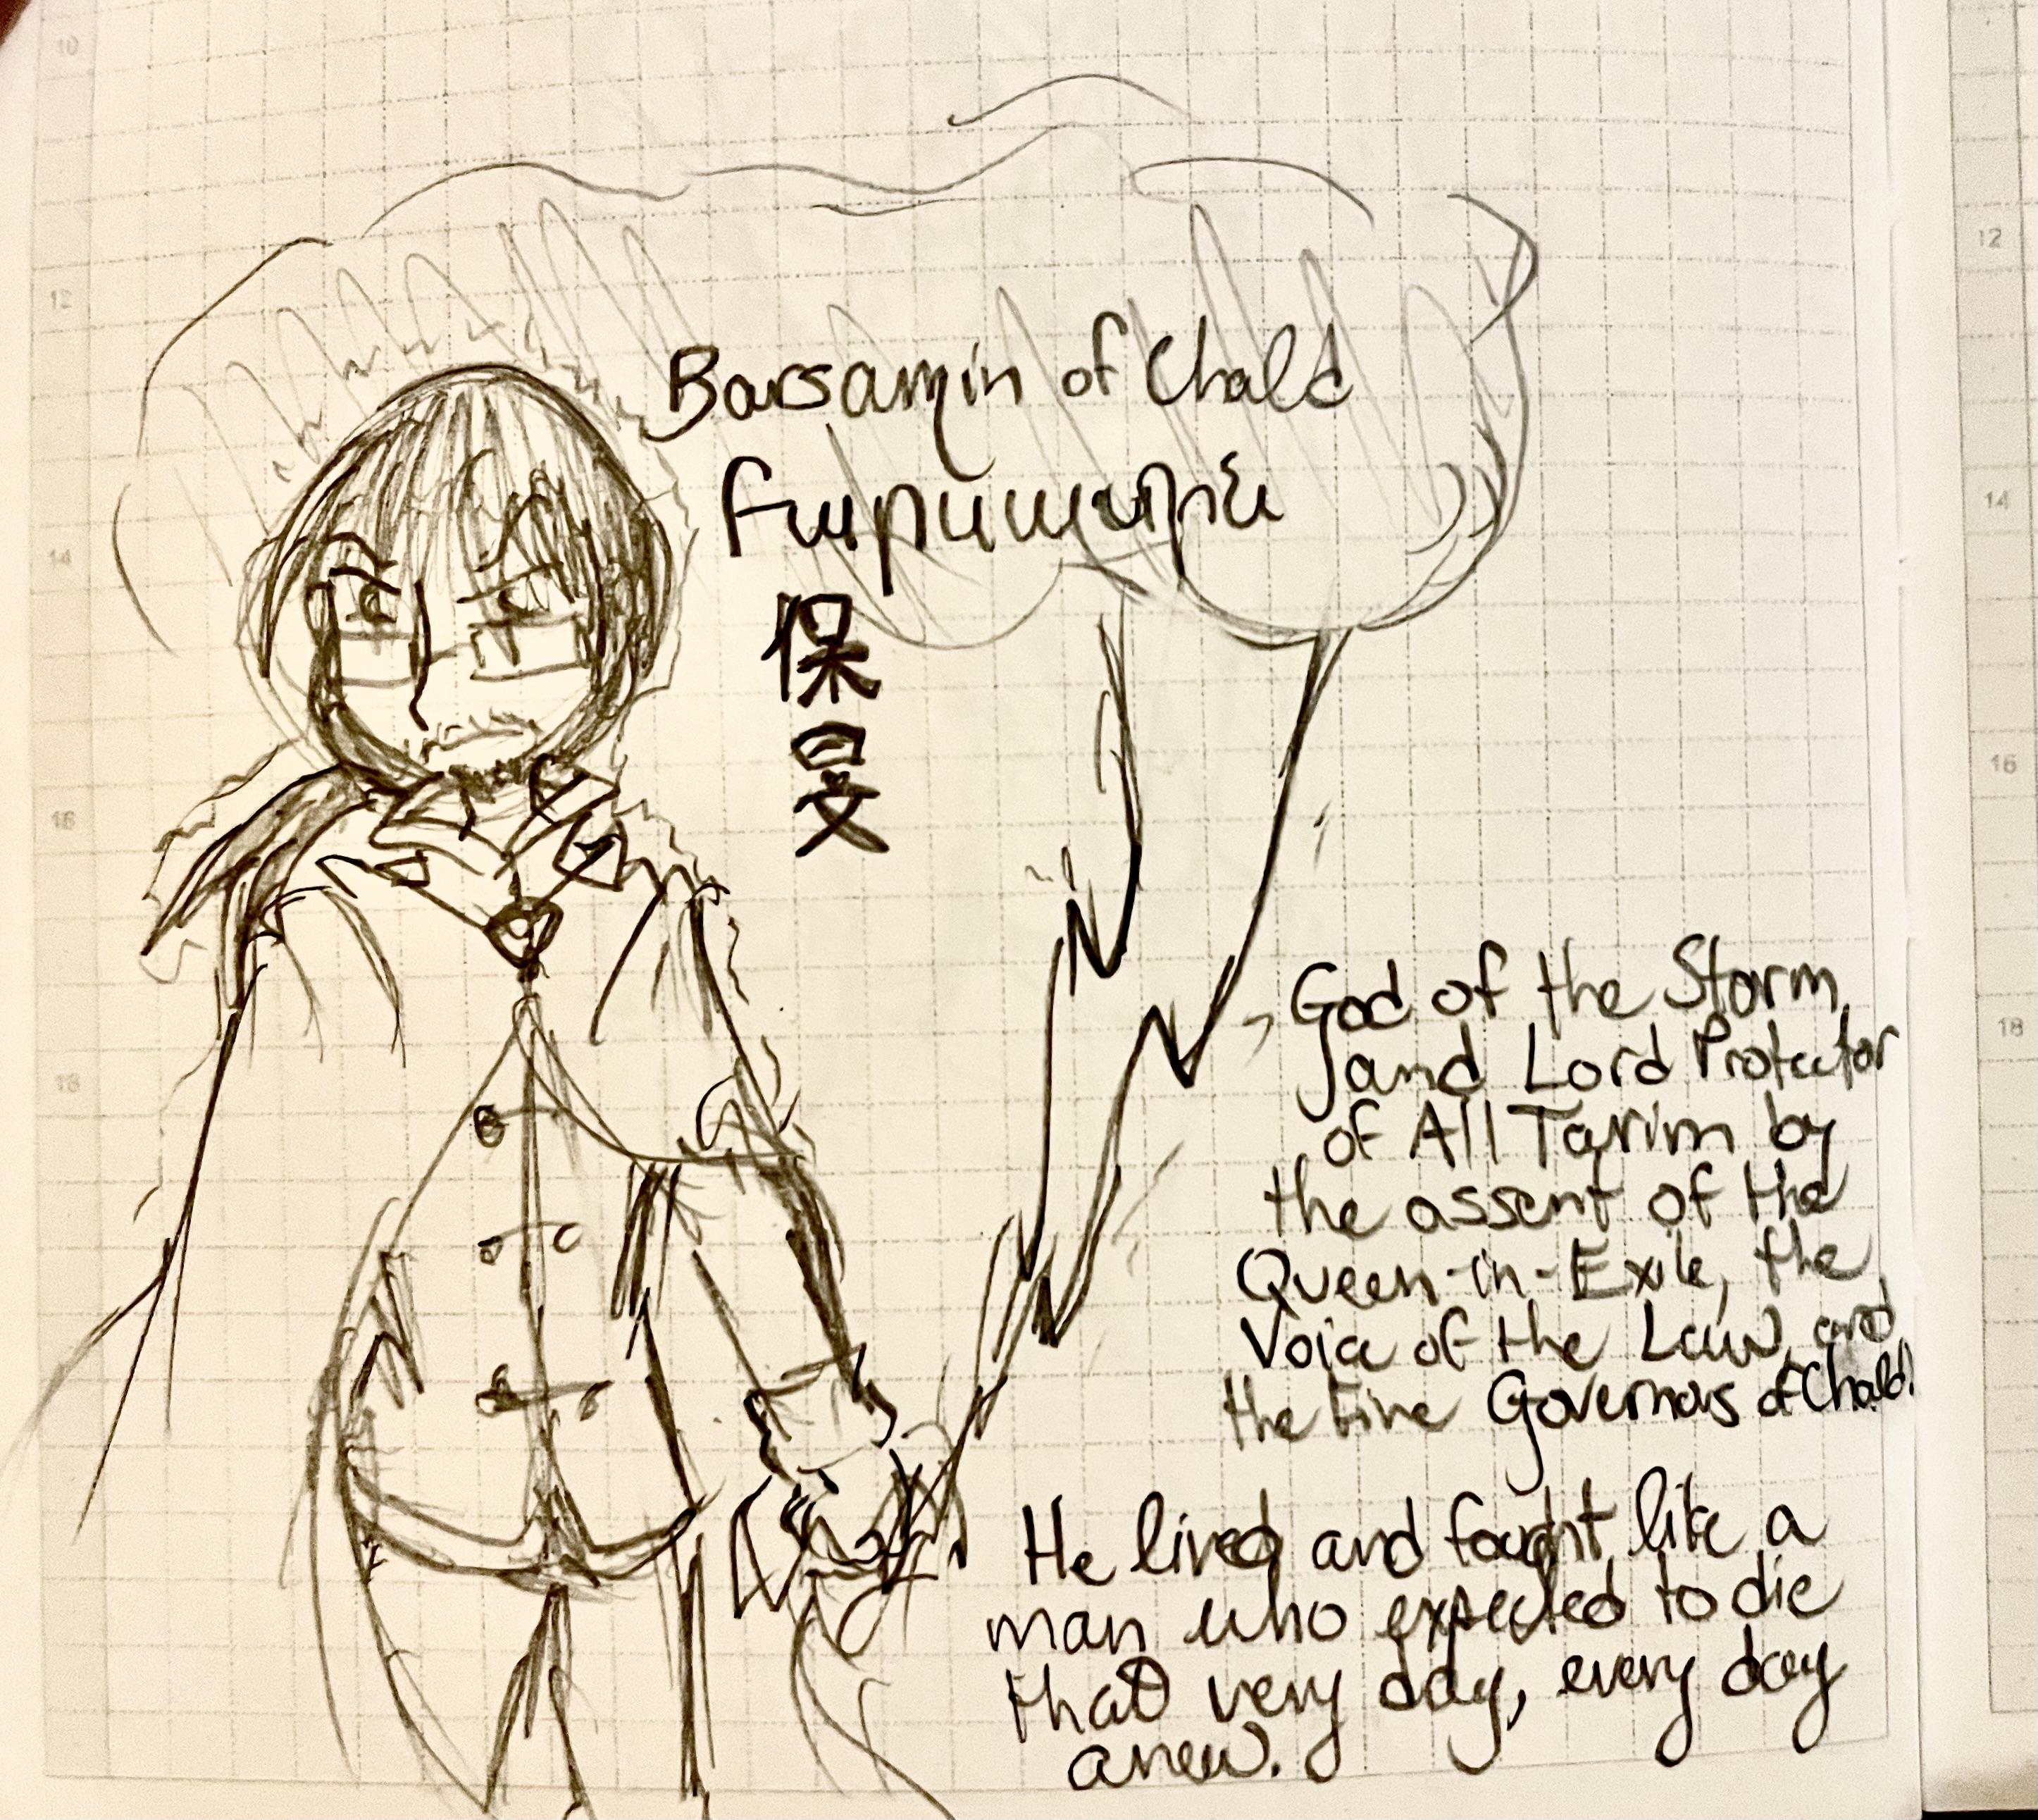 Barsamin of Chald
Բարսամին
保
旻
God of the Storm
and Lord Protector
of All Tarim by
the assent of the
Queen-in-Exile, the
Voice of the Law, and
the Five Governors of Chald.
He lived and fought like a
man who expected to die
that very day, every day
anew.
10
12
14
16
18
12
14
16
18